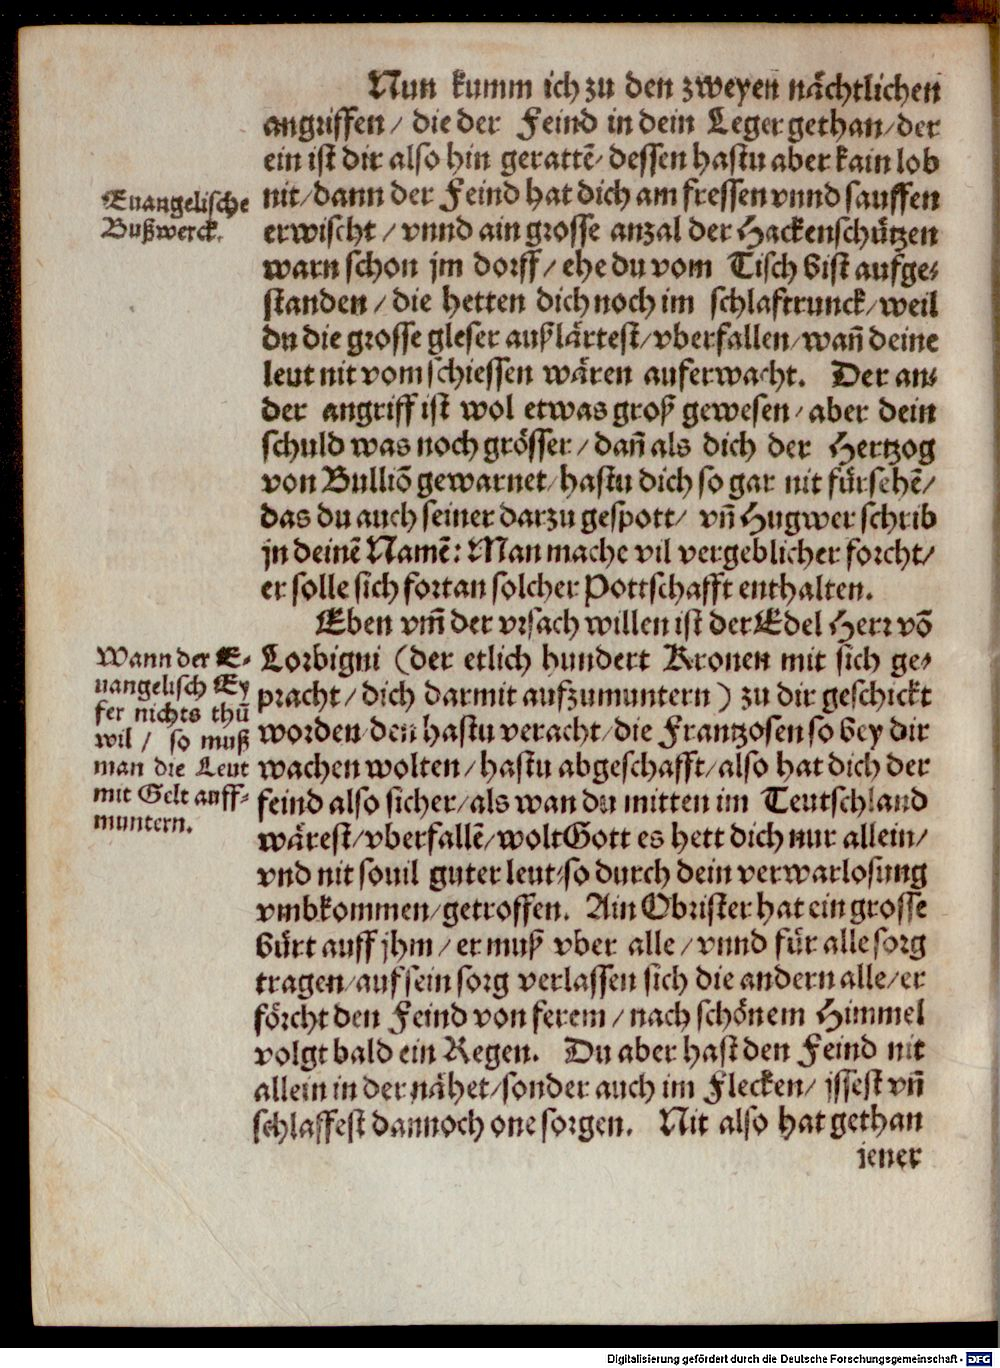 Nun kumm ich zu den zweyen nächtlichen
angriffen / die der Feind in dein Leger gethan / der
ein ist dir also hin gerattē / dessen hastu aber kain lob
nit / dann der Feind hat dich am fressen vnnd sauffen
erwischt / vnnd ain grosse anzal der Hackenschützen
warn schon jm dorff / ehe du vom Tisch bist aufge-
standen / die hetten dich noch im schlaftrunck / weil
du die grosse gleser außlärtest / vberfallen / wañ deine
leut nit vom schiessen wären auferwacht. Der an-
der angriff ist wol etwas groß gewesen / aber dein
schuld was noch grösser / dañ als dich der Hertzog
von Bulliō gewarnet / hastu dich so gar nit fürsehē /
das du auch seiner darzu gespott / vñ Hugwer schrib
jn deinē Namē: Man mache vil vergeblicher forcht /
er solle sich fortan solcher Pottschafft enthalten.
Euangelische
Bußwerck.
Eben vm̃ der vrsach willen ist der Edel Herr vō
Lorbigni (der etlich hundert Kronen mit sich ge-
pracht / dich darmit aufzumuntern) zu dir geschickt
worden / den hastu veracht / die Frantzosen so bey dir
wachen wolten / hastu abgeschafft / also hat dich der
feind also sicher / als wan du mitten im Teutschland
wärest / vberfallē / wolt Gott es hett dich nur allein /
vnd nit souil guter leut / so durch dein verwarlosung
vmbkommen / getroffen. Ain Obrister hat ein grosse
bürt auff jhm / er muß vber alle / vnnd für alle sorg
tragen / auf sein sorg verlassen sich die andern alle / er
förcht den Feind von ferem / nach schönem Himmel
volgt bald ein Regen. Du aber hast den Feind nit
allein in der nähet / sonder auch im Flecken / jssest vñ
schlaffest dannoch one sorgen. Nit also hat gethan
jener
Wann der E-
uangelisch Ey
fer nichts thū
wil / so muß
man die Leut
mit Gelt auff-
muntern.
Digitalisierung gefördert durch die Deutsche Forschungsgemeinschaft - DFG